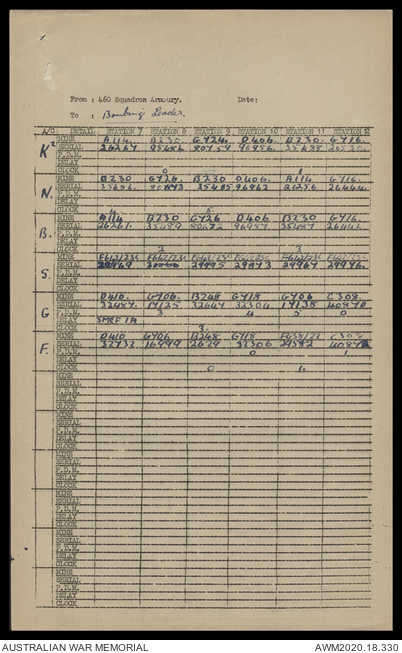 From : 460 Squadron Armoury. Date:
To : Bombing Leader.
A/C DETAIL STATION 7 STATION 8 STATION 9 STATION 10 STATION 11 STATION 12
K² MINE A114. B230. G724. D406. B230. G716.
SERIAL 26267
P.D.M.
DELAY
CLOCK 0 1
N. MINE B230 G726. B230 D406. A114 G716.
SERIAL 35485 96962 26444.
P.D.M.
DELAY
CLOCK
B. MINE A114 B230 G726 D406 B230 G716
SERIAL 26261. 35489 80672 96957 35487
P.D.M.
DELAY
CLOCK 2 3
S. MINE
SERIAL 29969 29995 29973 29967 29976.
P.D.M.
DELAY
CLOCK
G MINE D410. G706. B248 G718 G706 C308.
SERIAL 32487. 17125 32304 17138
P.D.M. 3 4 5 0
DELAY
CLOCK 3.
F. MINE D410 G706 B248 G718 C308
SERIAL 32732 16999 2629 32306 29382
P.D.M. 0 1
DELAY
CLOCK 0 1.
MINE
SERIAL
P.D.M.
DELAY
CLOCK
MINE
SERIAL
P.D.M.
DELAY
CLOCK
MINE
SERIAL
P.D.M.
DELAY
CLOCK
MINE
SERIAL
P.D.M.
DELAY
CLOCK
MINE
SERIAL
P.D.M.
DELAY
CLOCK
MINE
SERIAL
P.D.M.
DELAY
CLOCK
AUSTRALIAN WAR MEMORIAL AWM2020.18.330